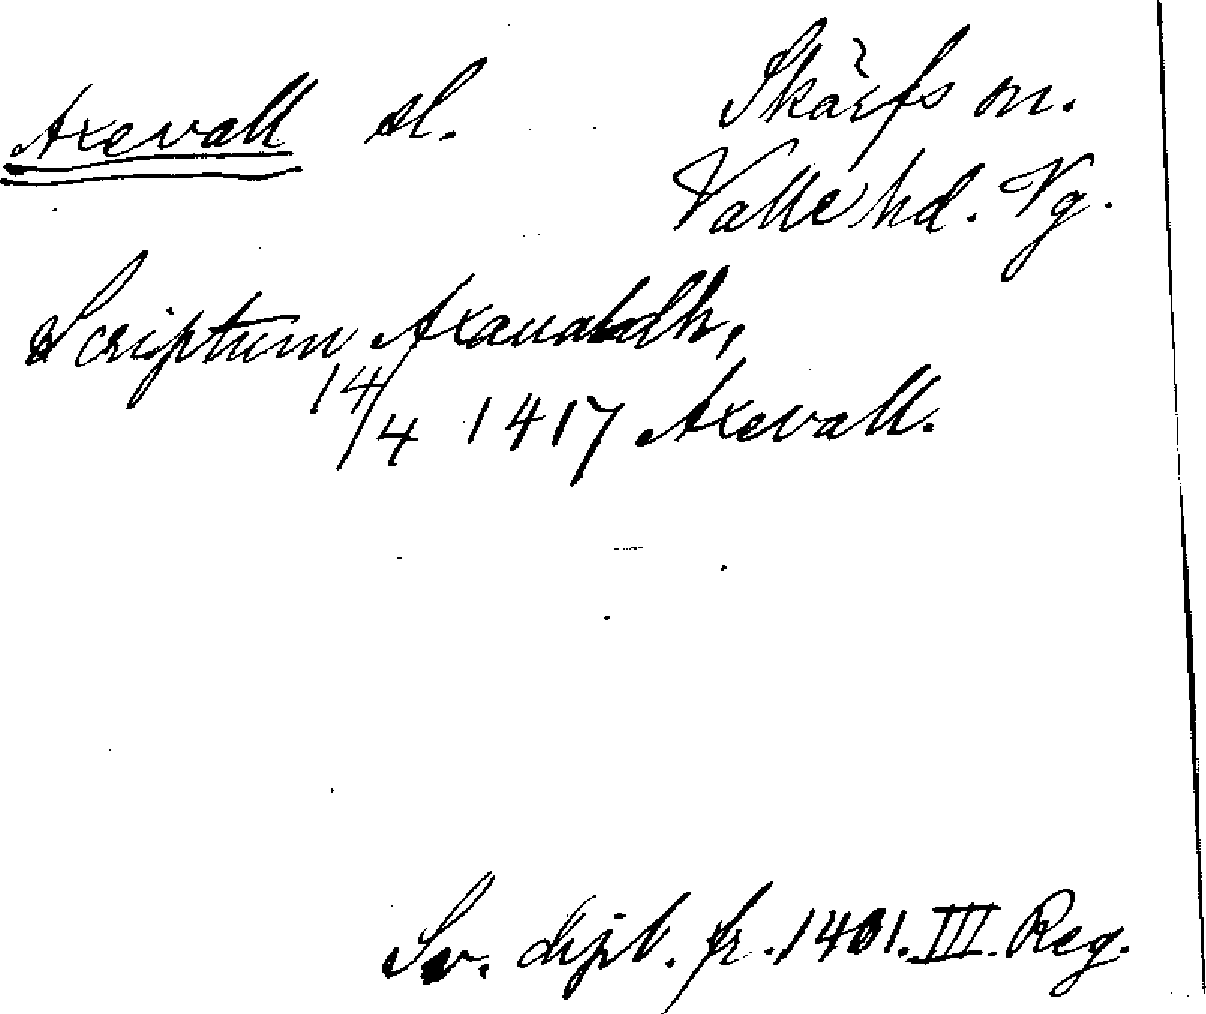 Axevall sl.
Skärfs sn.
Valle hd. Vg.
Scriptum Axaualdh,
14/4 1417 Axevall.
Sv. dipl. fr. 1401. III. Reg.